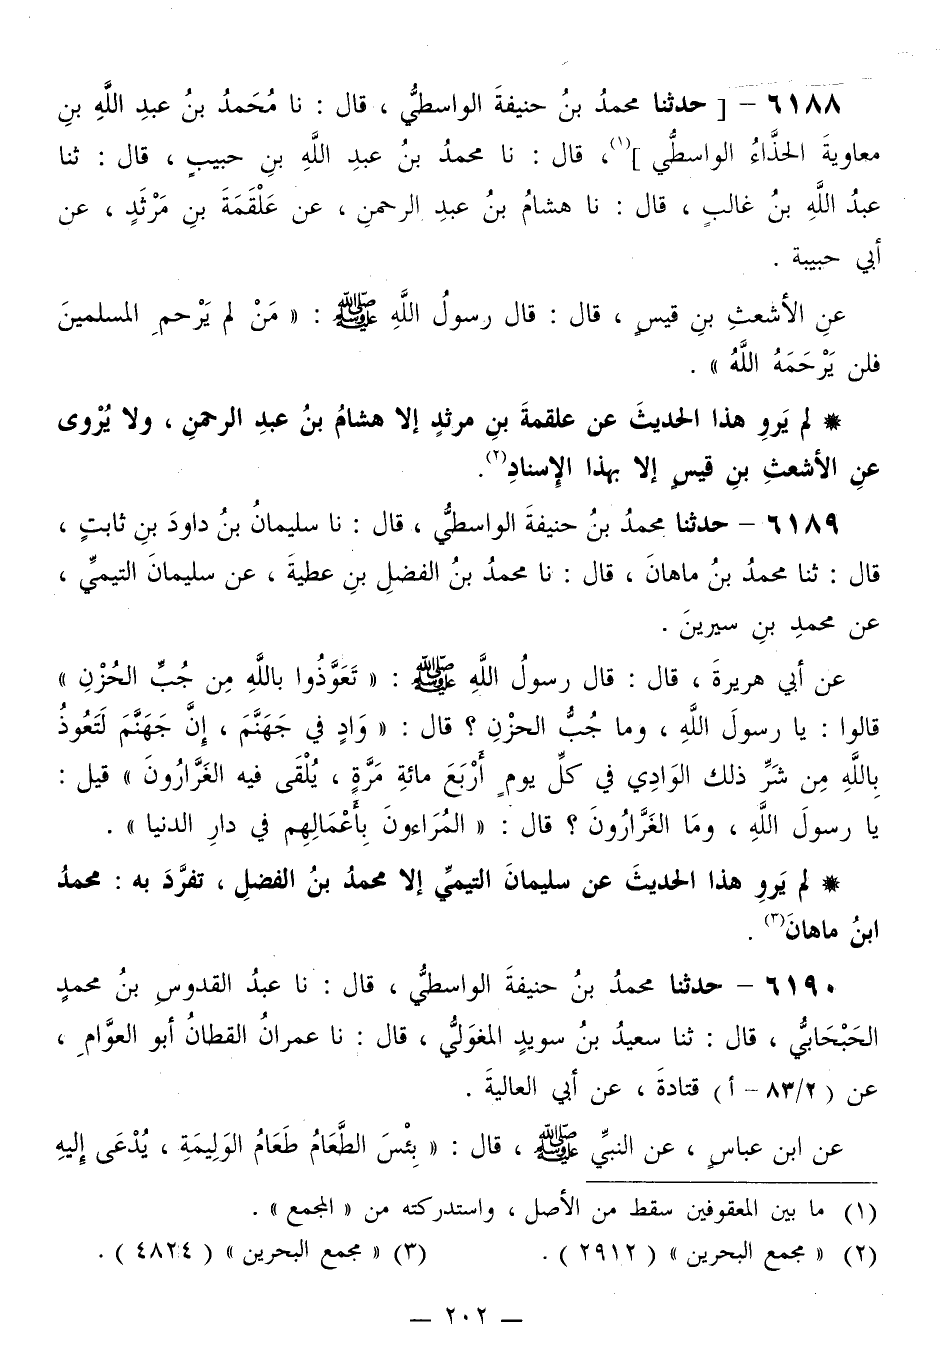 ٦١٨٨ – [ حدثنا محمدُ بنُ حنيفةَ الواسطيُّ ، قال : نا مُحَمدُ بنُ عبدِ اللَّهِ بنِ
معاويةَ الحذَّاءُ الواسطيُّ ](١)، قال : نا محمدُ بنُ عبدِ اللَّهِ بنِ حبيبٍ ، قال : ثنا
عبدُ اللَّهِ بنُ غالبٍ ، قال : نا هشامُ بنُ عبدِ الرحمنِ ، عن عَلْقَمَةَ بنِ مَرْثَدٍ ، عن
أبي حبيبة .
عنِ الأشعثِ بنِ قيسٍ ، قال : قال رسولُ اللَّهِ ﷺ : « مَنْ لم يَرْحمِ المسلمينَ
فلن يَرْحَمَهُ اللَّهُ » .
* لم يَروِ هذا الحديثَ عن علقمةَ بنِ مرثدٍ إلا هشامُ بنُ عبدِ الرحمنِ ، ولا يُرْوى
عنِ الأشعثِ بنِ قيسٍ إلا بهذا الإسنادِ(٢).
٦١٨٩ – حدثنا محمدُ بنُ حنيفةَ الواسطيُّ ، قال : نا سليمانُ بنُ داودَ بنِ ثابتٍ ،
قال : ثنا محمدُ بنُ ماهانَ ، قال : نا محمدُ بنُ الفضلِ بنِ عطيةَ ، عن سليمانَ التيميِّ ،
عن محمدِ بنِ سيرينَ .
عن أبي هريرةَ ، قال : قال رسولُ اللَّهِ ﷺ : « تَعَوَّذُوا باللَّهِ مِن جُبِّ الحُزْنِ »
قالوا : يا رسولَ اللَّهِ ، وما جُبُّ الحزْنِ ؟ قال : « وَادٍ في جَهَنَّمَ ، إِنَّ جَهَنَّمَ لَتَعُوذُ
بِاللَّهِ مِن شَرِّ ذلك الوَادِي في كلِّ يومٍ أَرْبَعَ مائةِ مَرَّةٍ ، يُلْقَى فيه الغَرَّارُونَ » قيل :
يا رسولَ اللَّهِ ، ومَا الغَرَّارُونَ ؟ قال : « المُرَاءونَ بِأَعْمَالِهِم في دارِ الدنيا » .
* لم يَروِ هذا الحديثَ عن سليمانَ التيميِّ إلا محمدُ بنُ الفضلِ ، تفرَّدَ به : محمدُ
ابنُ ماهانَ(٣) .
٦١٩٠ – حدثنا محمدُ بنُ حنيفةَ الواسطيُّ ، قال : نا عبدُ القدوسِ بنُ محمدٍ
الحَبْحَابيُّ ، قال : ثنا سعيدُ بنُ سويدٍ المغوَليُّ ، قال : نا عمرانُ القطانُ أبو العوَّامِ ،
عن ( ٨٣/٢ – أ ) قتادةَ ، عن أبي العاليةَ .
عن ابن عباسٍ ، عن النبيِّ ﷺ ، قال : « بِئْسَ الطَّعَامُ طَعَامُ الوَلِيمَةِ ، يُدْعَى إِليهِ
(١) ما بين المعقوفين سقط من الأصل ، واستدركته من « المجمع » .
(٢) « مجمع البحرين » ( ٢٩١٢ ) . (٣) « مجمع البحرين » ( ٤٨٢٤ ) .
— ٢٠٢ —